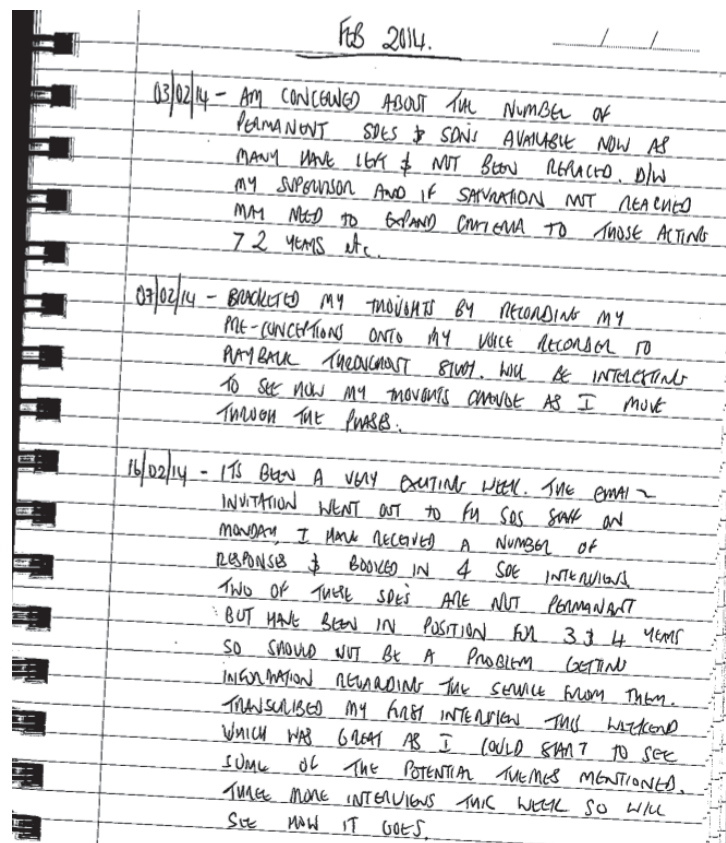 FEB 2014.
/ /
03/02/14 - AM CONCERNED ABOUT THE NUMBER OF
PERMANENT SDES & SDNS AVAILABLE NOW AS
MANY HAVE LEFT & NOT BEEN REPLACED. D/W
MY SUPERVISOR AND IF SATURATION NOT REACHED
MAY NEED TO EXPAND CRITERIA TO THOSE ACTING
7 2 YEARS etc.
07/02/14 - BRACKETED MY THOUGHTS BY RECORDING MY
PRE-CONCEPTIONS ONTO MY VOICE RECORDER TO
PLAYBACK THROUGHOUT STUDY. WILL BE INTERESTING
TO SEE HOW MY THOUGHTS CHANGE AS I MOVE
THROUGH THE PHASES.
16/02/14 - ITS BEEN A VERY EXCITING WEEK. THE EMAIL
INVITATION WENT OUT TO SDS STAFF ON
MONDAY, I HAVE RECEIVED A NUMBER OF
RESPONSES & BOOKED IN 4 SDE INTERVIEWS.
TWO OF THESE SDES ARE NOT PERMANANT
BUT HAVE BEEN IN POSITION FOR 3 & 4 YEARS
SO SHOULD NOT BE A PROBLEM GETTING
INFORMATION REGARDING THE SERVICE FROM THEM.
TRANSCRIBED MY FIRST INTERVIEW THIS WEEKEND
WHICH WAS GREAT AS I COULD START TO SEE
SOME OF THE POTENTIAL THEMES MENTIONED.
THREE MORE INTERVIEWS THIS WEEK SO WILL
SEE HOW IT GOES.